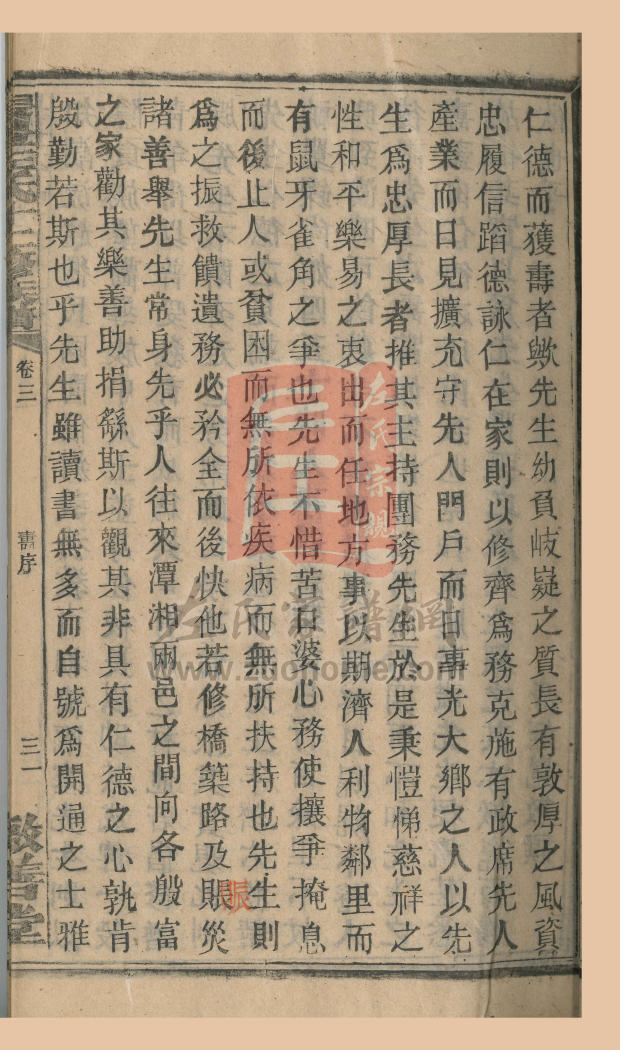 仁德而獲壽者歟先生幼負岐嶷之質長有敦厚之風資
忠履信蹈德詠仁在家則以修齊爲務克施有政席先人
產業而日見擴充守先人門戶而日事光大鄉之人以先
生爲忠厚長者推其主持團務先生於是秉愷悌慈祥之
性和平樂易之衷出而任地方事以期濟人利物鄰里而
有鼠牙雀角之爭也先生不惜苦口婆心務使攘爭掩息
而後止人或貧困而無所依疾病而無所扶持也先生則
爲之振救饋遺務必矜全而後快他若修橋築路及賬災
賑
諸善舉先生常身先乎人往來潭湘兩邑之間向各殷富
之家勸其樂善助捐繇斯以觀其非具有仁德之心孰肯
殷勤若斯也乎先生雖讀書無多而自號爲開通之士雅
卷三
壽序
三一
敦善堂
左氏宗親
左氏家譜網